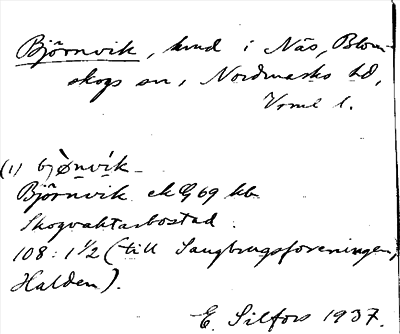 Björnvik, und i Näs, Blom-
skogs sn, Nordmarks hd,
Vrml l.
(1) bjǿnvík
Björnvik ek Q 69 kb
Skogvaktarbostad
108:1½ (till Saugbrugsforeningen,
Halden).
E. Silfors 1937.